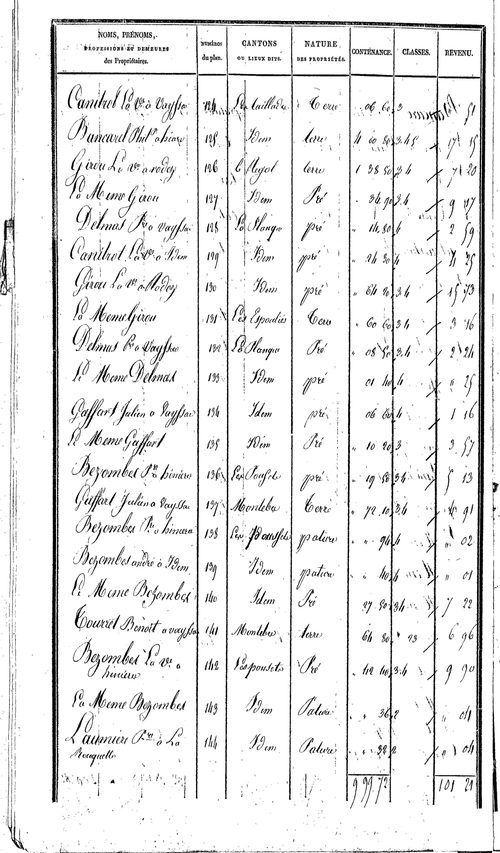 NOMS, PRÉNOMS, PROFESSIONS ET DEMEURES des Propriétaires. NUMÉROS du plan. CANTONS OU LIEUX DITS. NATURE DES PROPRIÉTÉS. CONTENANCE. CLASSES. REVENU.
Canitrot La Ve a Vaysse 124 Terre 06 60 3 51
Bancarel Phil. a hinière 125 Idem terre 4 60 80 3.4.5 17 15
Girou La Ve a rodez 126 terre 1 38 50 2.4 7 20
La Meme Girou 127 Idem Pré 34 90 3.4 9 27
Delmas Pre a Vaysse 128 La Planque pré 14 80 4 2 59
Canitrot La Ve a Idem 129 Idem pré 24 80 4 4 35
Girou La Ve a Rodez 130 Idem pré 64 20 3.4 15 73
La Meme Girou 131 Les Espouliés Terre 60 60 3.4 3 16
Delmas Pre a Vaysse 132 La Planque Pré 08 50 3.4 2 24
Le Meme Delmas 133 Idem pré 01 40 4 " 25
Gaffart Julien a Vaysse 134 Idem pré 06 60 4 1 16
Le Meme Gaffart 135 Idem Pré 10 20 3 2 57
Bezombes Pre hiniere 136 pré 19 50 3.4 5 13
Gaffart Julien a Vaysse 137 Montebre Terre 72 10 3.4 91
Bezombes hiniere 138 pature " 94 4 " 02
Bezombes andré a Idem 139 Idem pature " 40 4 " 01
Le Meme Bezombes 140 Idem Pré 27 50 3.4 7 22
Tourret Benoit a vaysse 141 Montebre terre 64 80 23 6 96
Bezombes La Ve a
hiniere 142 Pré 42 40 3.4 9 90
La Meme Bezombes 143 Idem Pature " 36 2 " 04
Laumiere Pre à La
Rouquette 144 Idem Pature 32 2 " 04
9 99 72 101 21